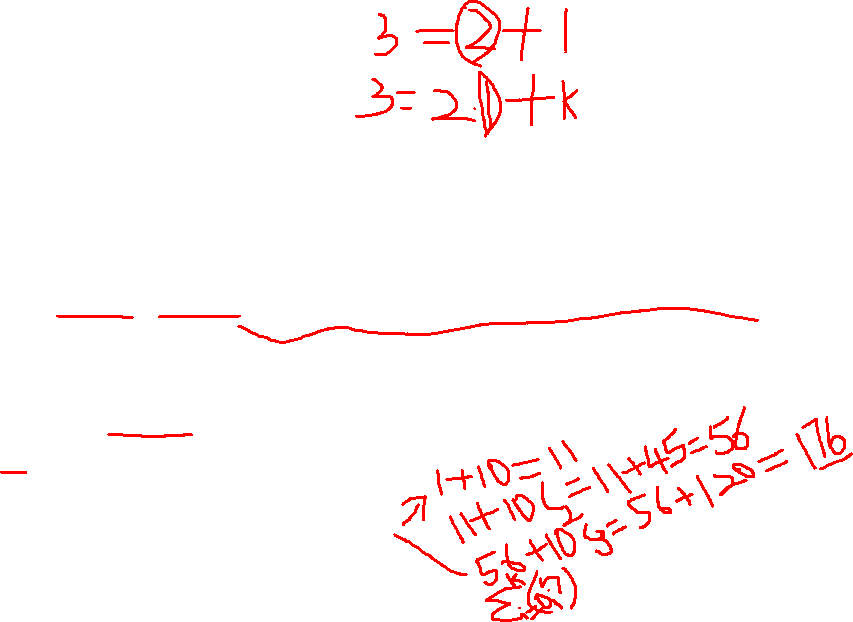 3 = 2 + 1
3 = 2·1 + k
1 + 10 = 11
11 + 10C2 = 11 + 45 = 56
56 + 10C3 = 56 + 120 = 176